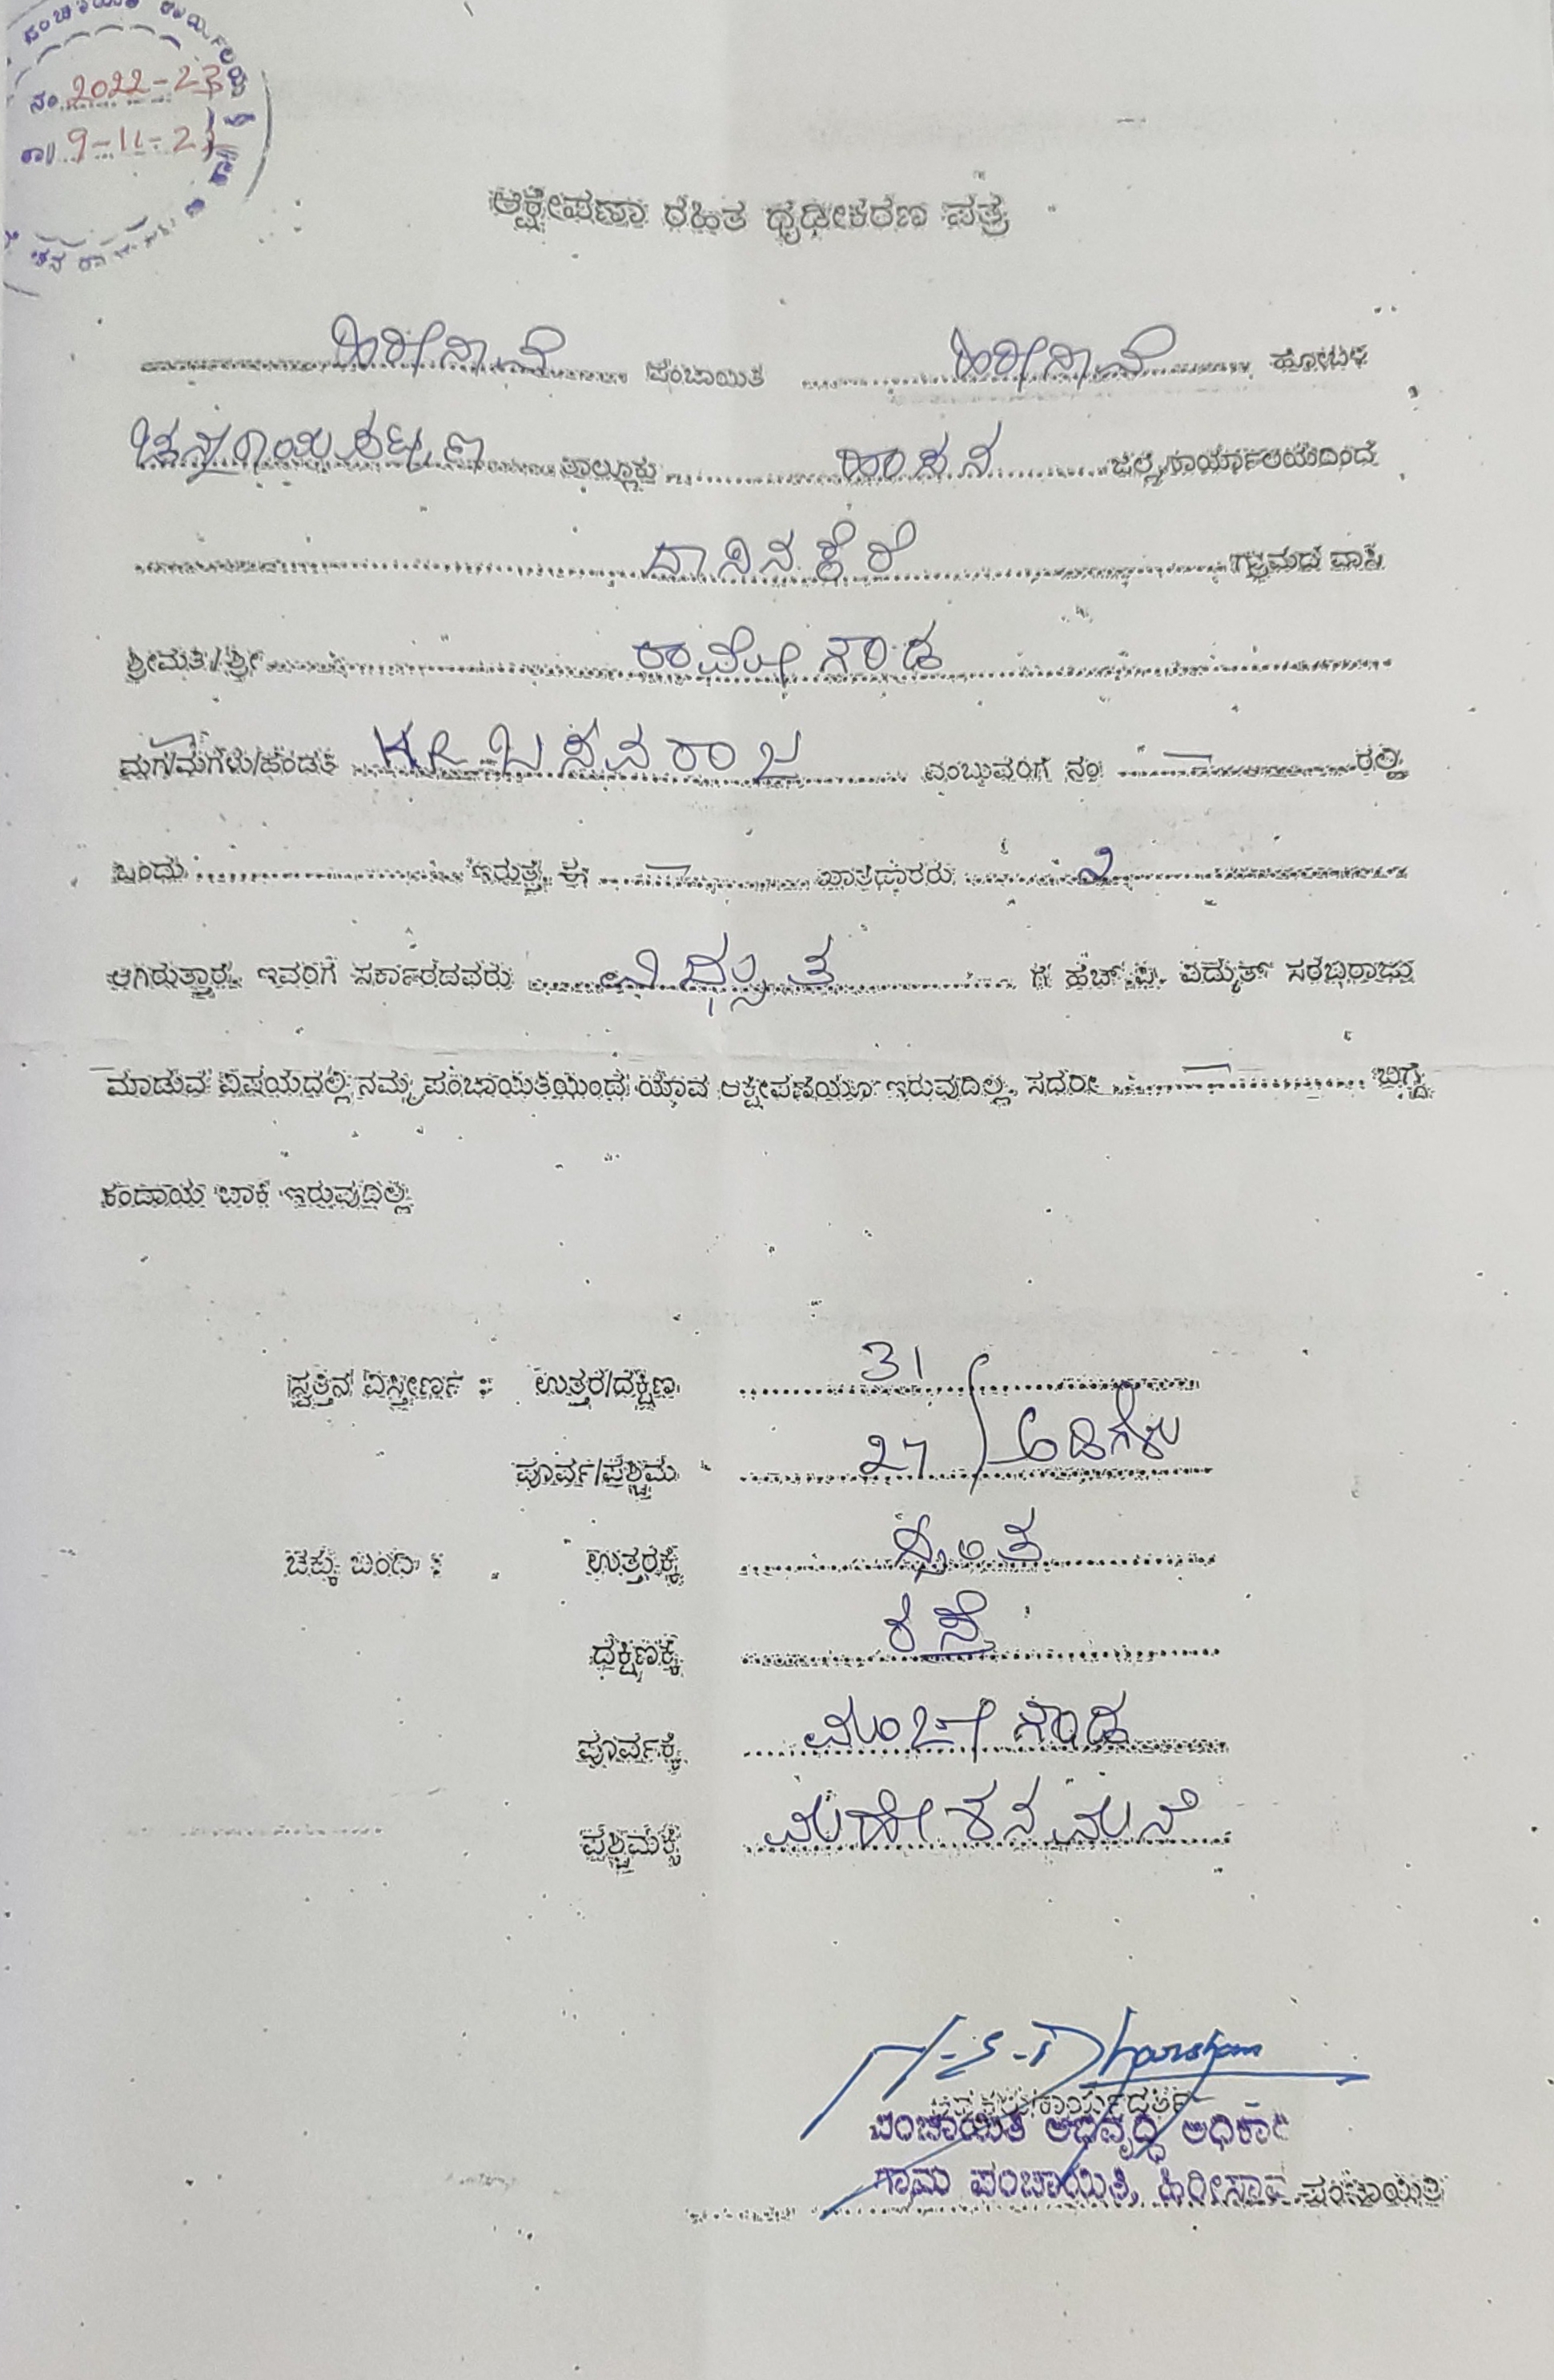 ಪಂಚಾಯಿತಿ ಕಾರ್ಯಾಲ
ನಂ. 2022-23
ತಾ॥ 9-11-22
ಆಕ್ಷೇಪಣಾ ರಹಿತ ಧೃಢೀಕರಣ ಪತ್ರ
ಹಿರೀಸಾವೆ ಪಂಚಾಯಿತಿ ಹಿರೀಸಾವೆ ಹೋಬಳಿ
ಚನ್ನರಾಯಪಟ್ಟಣ ತಾಲ್ಲೂಕು ಹಾಸನ ಜಿಲ್ಲೆ ಕಾರ್ಯಾಲಯದಿಂದ
ದಾಸಿನಕೆರೆ ಗ್ರಾಮದ ವಾಸಿ
ಶ್ರೀಮತಿ/ಶ್ರೀ ರಾಮೇಗೌಡ
ಮಗ/ಮಗಳು/ಹೆಂಡತಿ ಬಸವರಾಜ ಎಂಬುವರಿಗೆ ನಂ - ರಲ್ಲಿ
ಒಂದು ಇರುತ್ತೆ ಈ - ಖಾತೆದಾರರು
ಆಗಿರುತ್ತಾರೆ. ಇವರಿಗೆ ಸರ್ಕಾರದವರು ವಿಧ್ಯುತ ಗೆ ಹೆಚ್.ಪಿ. ವಿದ್ಯುತ್ ಸರಬರಾಜು
ಮಾಡುವ ವಿಷಯದಲ್ಲಿ ನಮ್ಮ ಪಂಚಾಯಿತಿಯಿಂದ ಯಾವ ಆಕ್ಷೇಪಣೆಯೂ ಇರುವುದಿಲ್ಲ. ಸದರೀ - ಬಗ್ಗೆ
ಕಂದಾಯ ಬಾಕಿ ಇರುವುದಿಲ್ಲ
ಸ್ವತ್ತಿನ ವಿಸ್ತೀರ್ಣ : ಉತ್ತರ/ದಕ್ಷಿಣ 31
ಪೂರ್ವ/ಪಶ್ಚಿಮ 27 ಅಡಿಗಳು
ಚಕ್ಕು ಬಂದಿ : ಉತ್ತರಕ್ಕೆ
ದಕ್ಷಿಣಕ್ಕೆ ರಸ್ತೆ
ಪೂರ್ವಕ್ಕೆ ಮಂಜೇಗೌಡ
ಪಶ್ಚಿಮಕ್ಕೆ ಮಹೇಶನ ಮನೆ
H.S. Dharshan
ಪಂಚಾಯಿತಿ ಅಭಿವೃದ್ಧಿ ಅಧಿಕಾರಿ
ಗ್ರಾಮ ಪಂಚಾಯಿತಿ, ಹಿರೀಸಾವೆ ಪಂಚಾಯಿತಿ